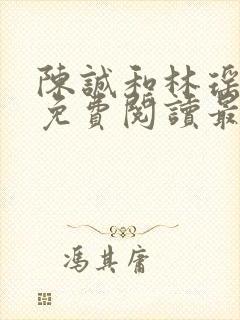 陳誠和林瑶
免費閱讀最
馮其庸